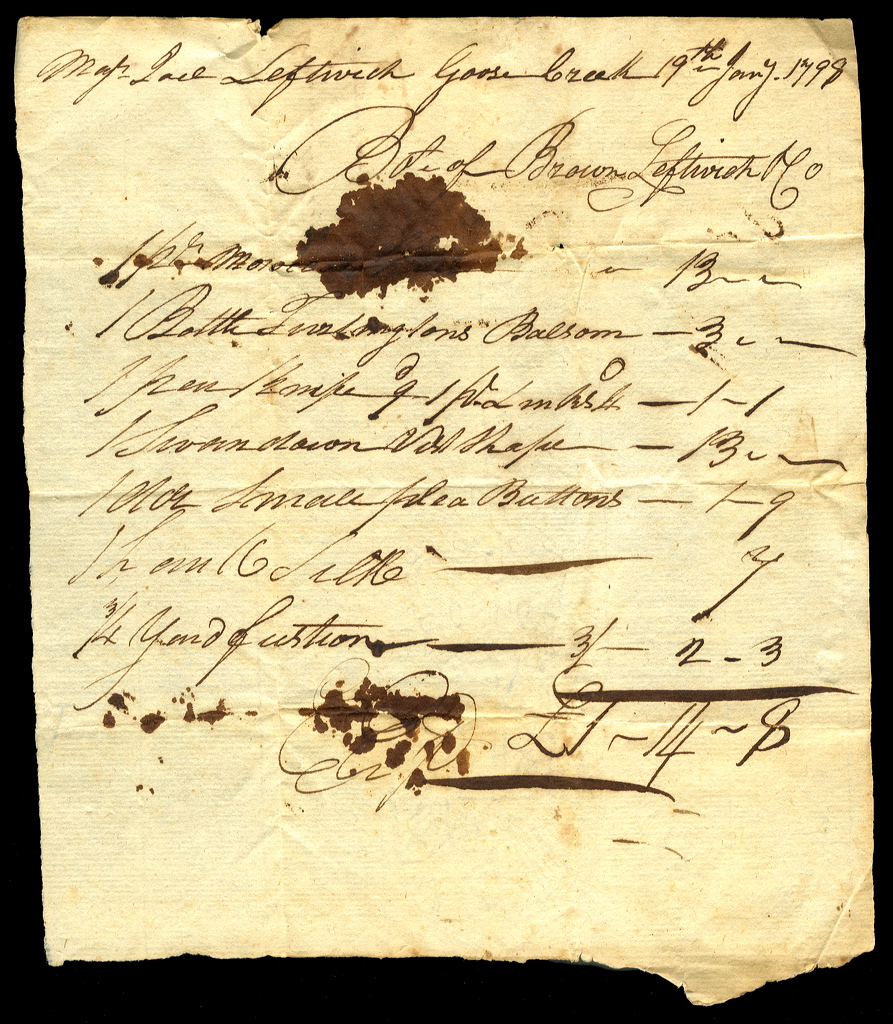 Majr. Joel Leftwich Goose Creek 19th Jany. 1798
Bot. of Brown Leftwich & Co
1 pr. " 13 " "
1 Bottle Turlingtons Balsom — 3 " "
1 pen knife & 1 pr. — 1 - 1
1 Swandown Vest Shape — 13 " "
1 doz Small Buttons — 1 - 9
1 hank Silk — 7
3/4 Yard fustion — 3/ — 2 - 3
£1 ~ 14 ~ 8